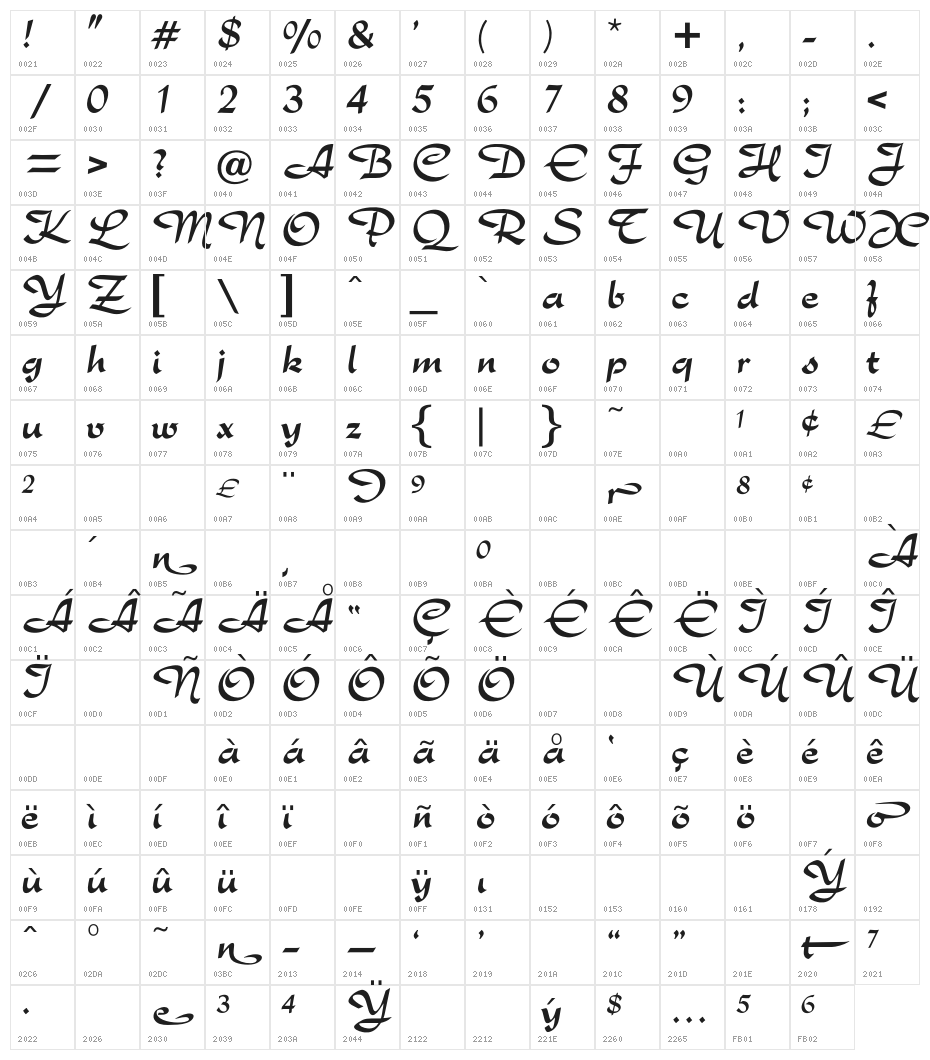 ! " # $ % & ' ( ) * + , - .
0021 0022 0023 0024 0025 0026 0027 0028 0029 002A 002B 002C 002D 002E
/ 0 1 2 3 4 5 6 7 8 9 : ; <
002F 0030 0031 0032 0033 0034 0035 0036 0037 0038 0039 003A 003B 003C
= > ? @ A B C D E F G H I J
003D 003E 003F 0040 0041 0042 0043 0044 0045 0046 0047 0048 0049 004A
K L M N O P Q R S T U V W X
004B 004C 004D 004E 004F 0050 0051 0052 0053 0054 0055 0056 0057 0058
Y Z [ \ ] ^ _ ` a b c d e f
0059 005A 005B 005C 005D 005E 005F 0060 0061 0062 0063 0064 0065 0066
g h i j k l m n o p q r s t
0067 0068 0069 006A 006B 006C 006D 006E 006F 0070 0071 0072 0073 0074
u v w x y z { | } ~ 1 ¢ £
0075 0076 0077 0078 0079 007A 007B 007C 007D 007E 00A0 00A1 00A2 00A3
2 £ ¨ D 9 r 8 ¢
00A4 00A5 00A6 00A7 00A8 00A9 00AA 00AB 00AC 00AE 00AF 00B0 00B1 00B2
´ n , 0 À
00B3 00B4 00B5 00B6 00B7 00B8 00B9 00BA 00BB 00BC 00BD 00BE 00BF 00C0
Á Â Ã Ä Å “ Ç È É Ê Ë Ì Í Î
00C1 00C2 00C3 00C4 00C5 00C6 00C7 00C8 00C9 00CA 00CB 00CC 00CD 00CE
Ï Ñ Ò Ó Ô Õ Ö Ù Ú Û Ü
00CF 00D0 00D1 00D2 00D3 00D4 00D5 00D6 00D7 00D8 00D9 00DA 00DB 00DC
à á â ã ä å ‛ ç è é ê
00DD 00DE 00DF 00E0 00E1 00E2 00E3 00E4 00E5 00E6 00E7 00E8 00E9 00EA
ë ì í î ï ñ ò ó ô õ ö o
00EB 00EC 00ED 00EE 00EF 00F0 00F1 00F2 00F3 00F4 00F5 00F6 00F7 00F8
ù ú û ü ÿ ı Ý
00F9 00FA 00FB 00FC 00FD 00FE 00FF 0131 0152 0153 0160 0161 0178 0192
ˆ ˚ ˜ n – — ‘ ’ “ ” t 7
02C6 02DA 02DC 03BC 2013 2014 2018 2019 201A 201C 201D 201E 2020 2021
· e 3 4 Ÿ ý $ … 5 6
2022 2026 2030 2039 203A 2044 2122 2212 221E 2260 2265 FB01 FB02